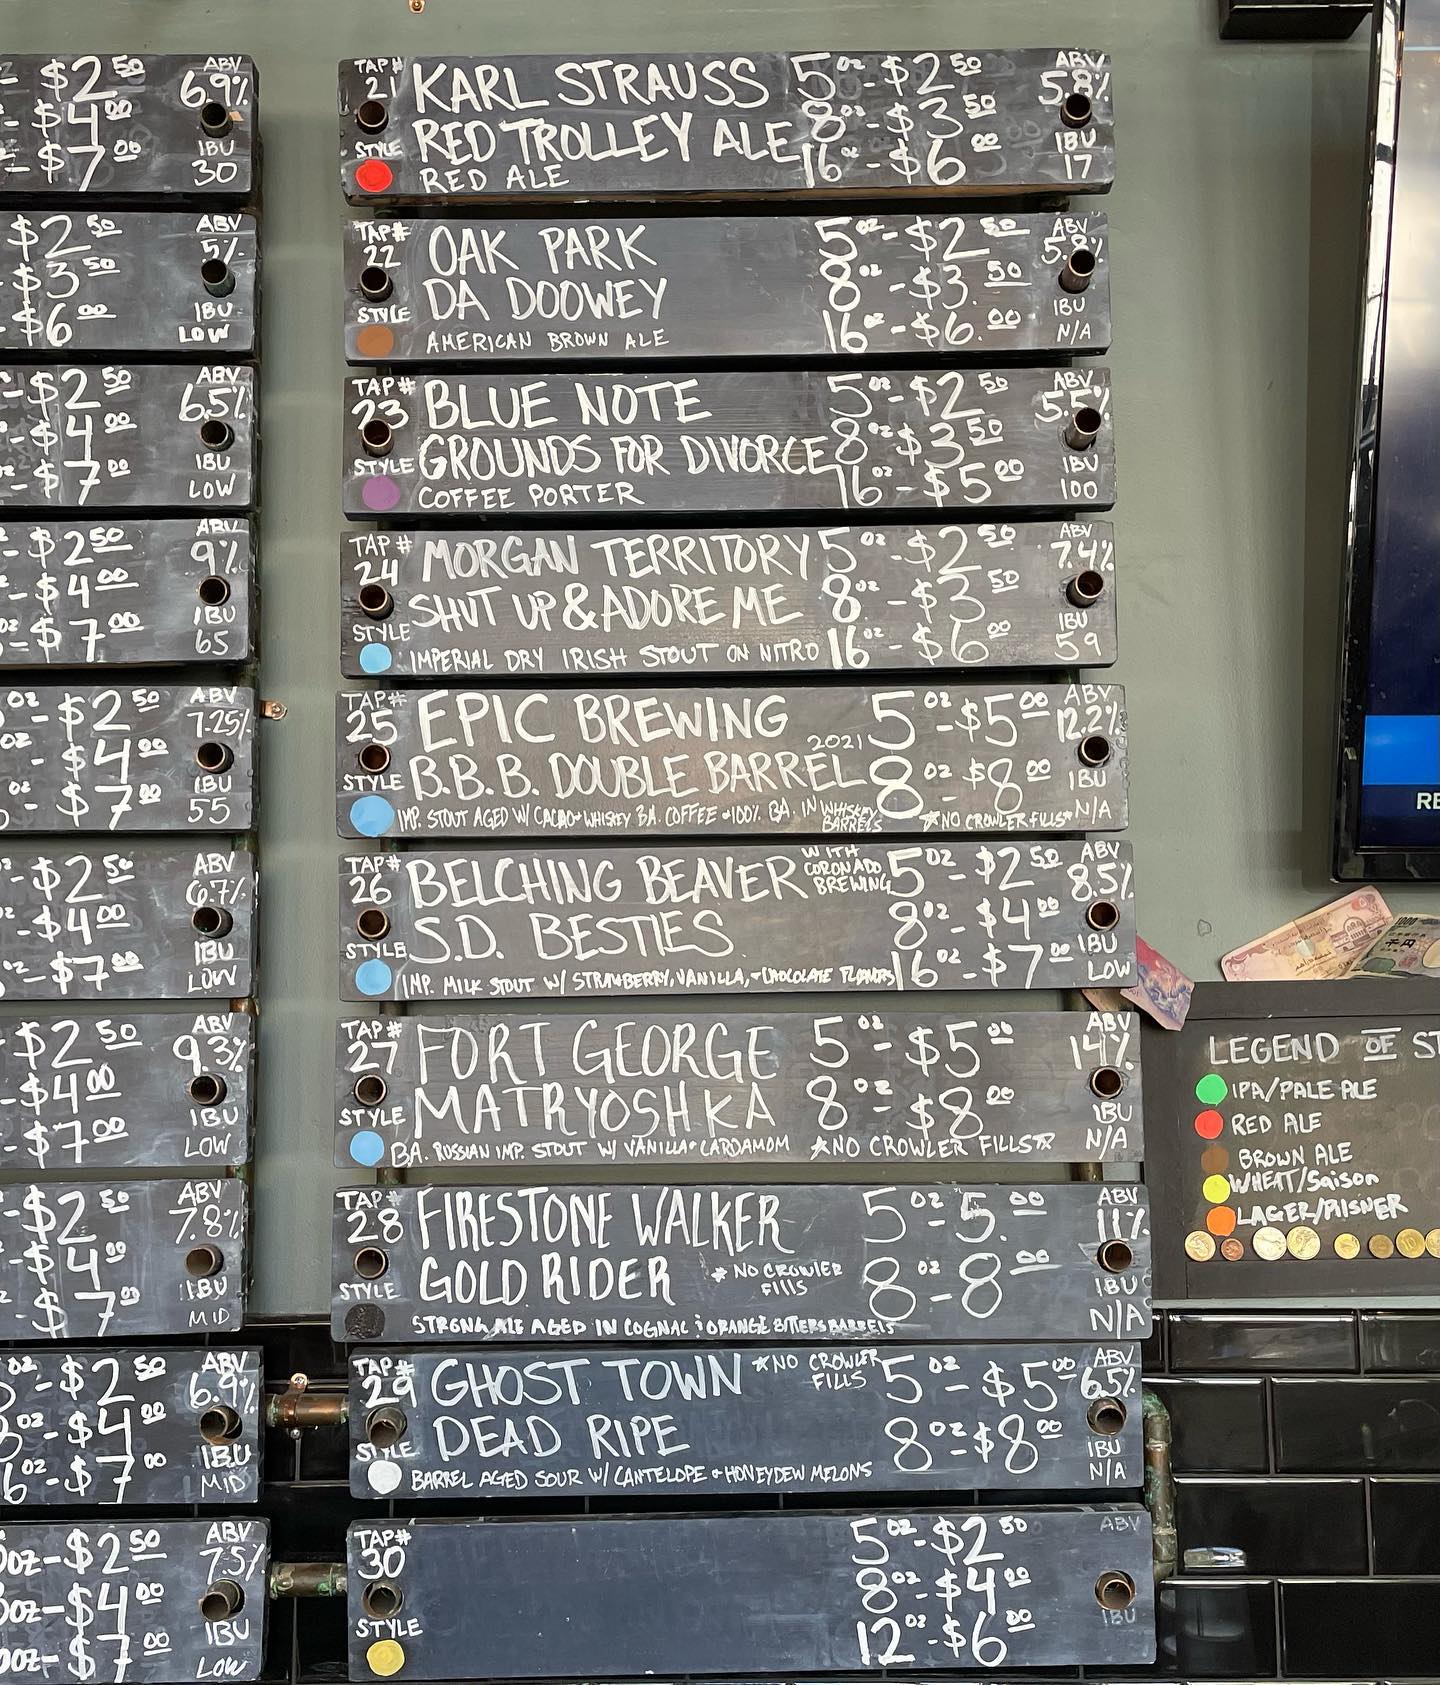 $2 50
$4 00
- $7 00
ABV
6.9%
IBU
30
$2 50
$3 50
-$6 00
ABV
5%
IBU
LOW
-$2 50
-$4 00
-$7 00
ABV
6.5%
IBU
LOW
-$2 50
-$4 00
OZ -$7 00
ABV
9%
IBU
65
OZ -$2 50
OZ -$4 00
- $7 00
ABV
7.25%
IBU
55
-$2 50
-$4 00
OZ -$7 00
ABV
6.7%
IBU
LOW
-$2 50
-$4 00
- $7 00
ABV
9.3%
IBU
LOW
-$2 50
-$4 00
- $7 00
ABV
7.8%
IBU
MID
OZ -$2 50
OZ -$4 00
6 OZ -$7 00
ABV
6.9%
IBU
MID
OZ-$2 50
OZ-$4 00
OZ-$7 00
ABV
7.5%
IBU
LOW
TAP#
21
STYLE
KARL STRAUSS
RED TROLLEY ALE
RED ALE
5 OZ - $2 50
8 OZ - $3 50
16 OZ - $6 00
ABV
5.8%
IBU
17
TAP#
22
STYLE
OAK PARK
DA DOOWEY
AMERICAN BROWN ALE
5 OZ - $2 50
8 OZ - $3. 50
16 OZ - $6. 00
ABV
5.8%
IBU
N/A
TAP#
23
STYLE
BLUE NOTE
GROUNDS FOR DIVORCE
COFFEE PORTER
5 OZ - $2 50
8 OZ $3 50
16 OZ - $5 00
ABV
5.5%
IBU
100
TAP#
24
STYLE
MORGAN TERRITORY
SHUT UP & ADORE ME
IMPERIAL DRY IRISH STOUT ON NITRO
5 OZ - $2 50
8 OZ - $3 50
16 OZ - $6 00
ABV
7.4%
IBU
59
TAP#
25
STYLE
EPIC BREWING
2021
B.B.B. DOUBLE BARREL
IMP. STOUT AGED W/ CACAO + WHISKEY B.A. COFFEE + 100% BA. IN WHISKEY BARRELS
5 OZ - $5 00
8 OZ - $8 00
*NO CROWLER FILLS*
ABV
12.2%
IBU
N/A
TAP#
26
STYLE
BELCHING BEAVER
WITH
CORONADO
BREWING
S.D. BESTIES
IMP. MILK STOUT W/ STRAWBERRY, VANILLA, + CHOCOLATE FLAVORS
5 OZ - $2 50
8 OZ - $4 00
16 OZ - $7 00
ABV
8.5%
IBU
LOW
TAP#
27
STYLE
FORT GEORGE
MATRYOSHKA
BA. RUSSIAN IMP. STOUT W/ VANILLA + CARDAMOM
5 OZ - $5 00
8 OZ - $8 00
*NO CROWLER FILLS*
ABV
14%
IBU
N/A
TAP#
28
STYLE
FIRESTONE WALKER
GOLD RIDER
* NO CROWLER
FILLS
STRONG ALE AGED IN COGNAC & ORANGE BITTERS BARRELS
5 OZ - 5. 00
8 OZ - 8 00
ABV
11%
IBU
N/A
TAP#
29
STYLE
GHOST TOWN
*NO CROWLER
FILLS
DEAD RIPE
BARREL AGED SOUR W/ CANTELOPE + HONEYDEW MELONS
5 OZ - $5 00
8 OZ - $8 00
ABV
6.5%
IBU
N/A
TAP#
30
STYLE
5 OZ - $2 50
8 OZ - $4 00
12 OZ - $6 00
ABV
IBU
LEGEND OF ST
IPA/PALE ALE
RED ALE
BROWN ALE
WHEAT/Saison
LAGER/PILSNER
RE
1000
千円